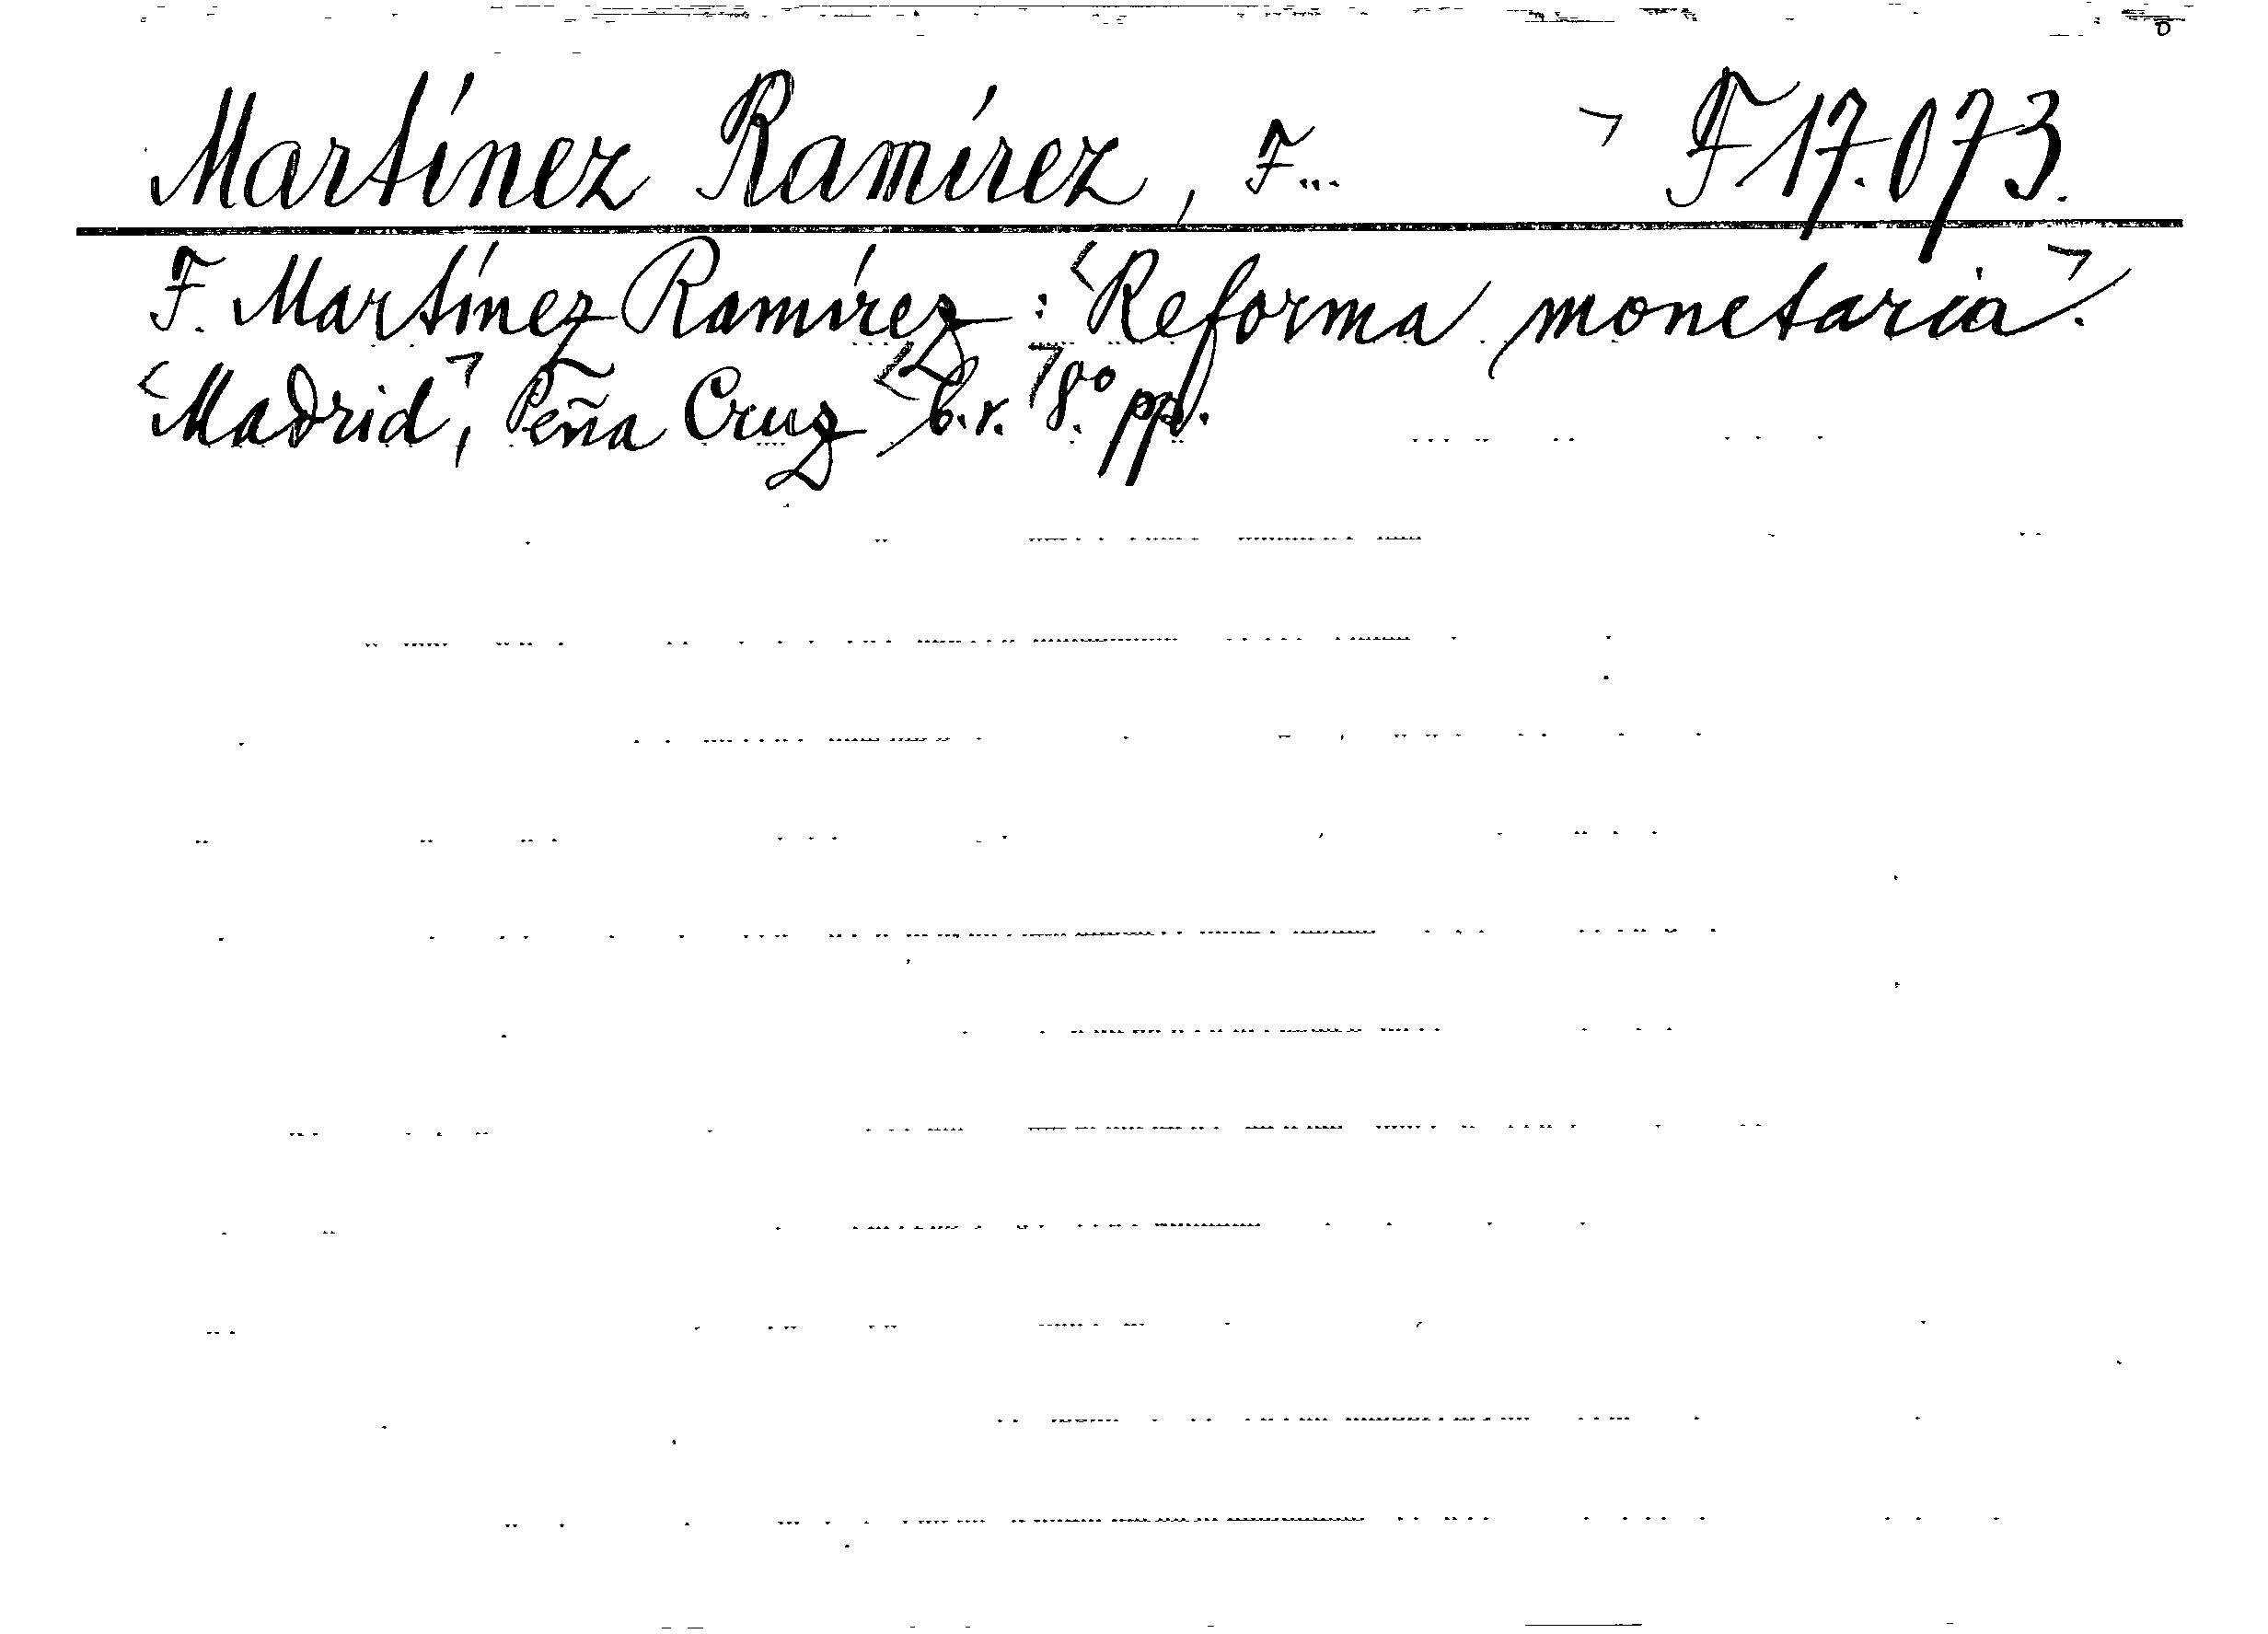 Martínez Ramírez, F... ¬ F 17.073.
F. Martínez Ramírez : <Reforma monetaria¬.
<Madrid¬, Peña Cruz <b.r.¬ 8.º pp.